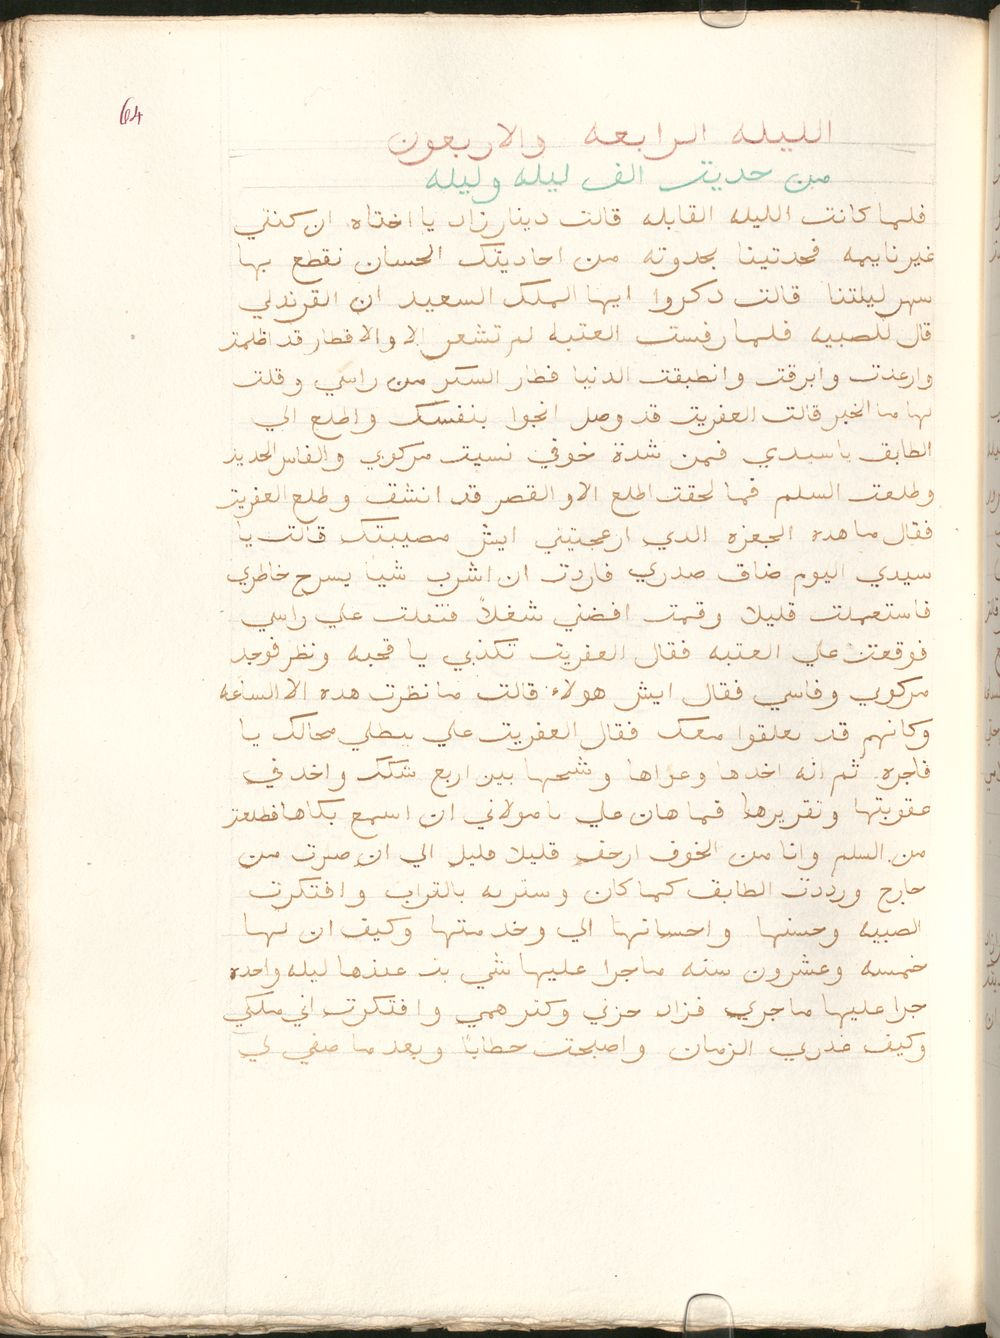 64
الليله الرابعه والاربعون
من حديت الف ليله وليله
فلما كانت الليله القابله قالت دينارزاد يا اختاه ان كنتي
غير نايمه فحدتينا بحدوته من احاديتك الحسان نقطع بها
سهر ليلتنا قالت دكروا ايها الملك السعيد ان القرندلي
قال للصبيه فلما رفست العتبه لم تشعر الا والاقطار قد اظلمت
وارعدت وابرقت وانطبقت الدنيا فطار السكر من راسي وقلت
لها ما الخبر قالت العفريت قد وصل انجوا بنفسك واطلع الي
الطابق يا سيدي فمن شدة خوفي نسيت مركوبي والفاس الحديد
وطلعت السلم فما لحقت اطلع الاو القصر قد انشق وطلع العفريت
فقال ما هده الجعزه الدي ارعجتيني ايش مصيبتك قالت يا
سيدي اليوم ضاق صدري فاردت ان اشرب شيا يسرح خاطري
فاستعملت قليلا وقمت اقضي شغلاً فتقلت علي راسي
فوقعت علي العتبه فقال العفريت تكذبي يا قحبه ونظر فوجد
مركوبي وفاسي فقال ايش هولاء قالت ما نظرت هده الا الساعه
وكانهم قد تعلقوا معك فقال العفريت علي يبطلي محالك يا
فاجره ثم انه اخدها وعراها وشبحها بين اربع سكك واخد في
عقوبتها وتقريرها فما هان علي يا مولاتي ان اسمع بكاها فطلعت
من السلم وانا من الخوف ارجف قليلا قليل الي ان صرت من
خارج ورددت الطابق كما كان وستربه بالتراب وافتكرت
الصبيه وحسنها واحسانها الي وخدمتها وكيف ان لها
خمسه وعشرون سنه ماجرا عليها شي بت عندها ليله واحده
جرا عليها ماجري فزاد حزني وكتر همي وافتكرت اني ملكي
وكيف غدري الزمان واصبحت حطاباً وبعد ما صفي لي